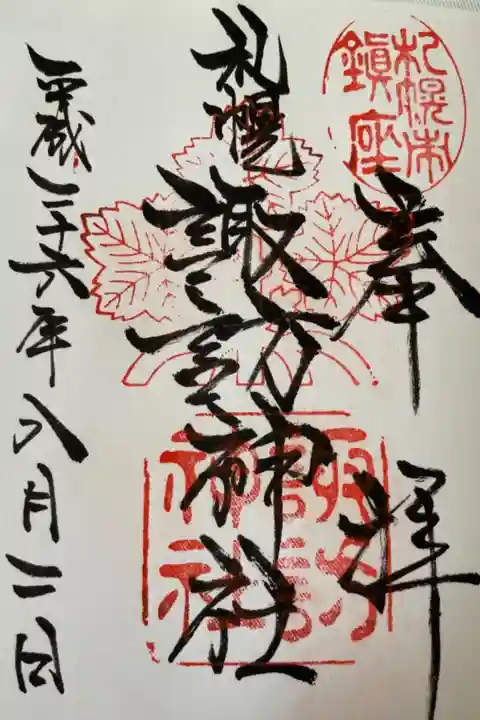 札幌市
鎮座
奉拝
札幌
諏訪神社
諏訪
神社
平成二十六年八月一日